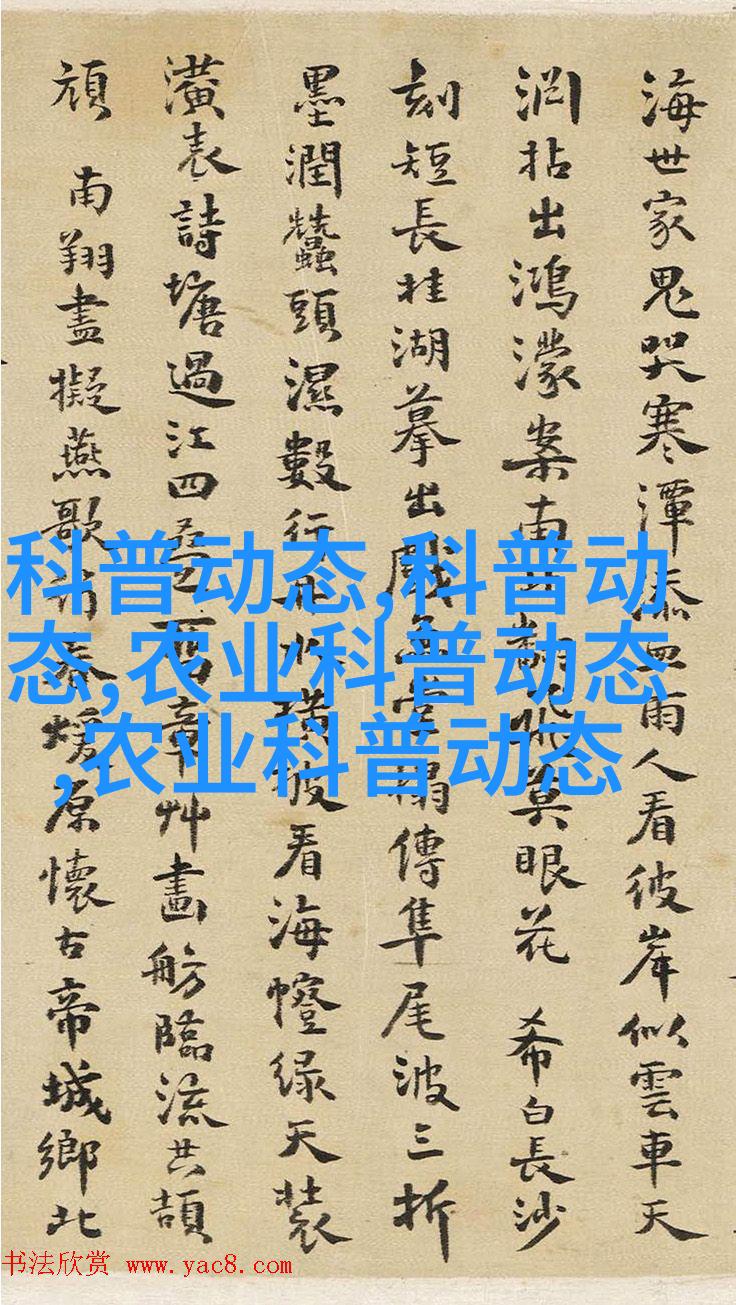 海世家鬼哭寒潭添血雨人看彼岸似雲車天
洞拈出鴻濛案南莫眼花 希白長沙
刻短長桂湖摹出戲魚堂榻傳隼尾波三折
墨潤蠶頭濕數行披看海幢绿天裝
潢表詩塘過江四疊章艸畫舫臨流共頡
頏 南翔盡擬燕歌春煖原懷古帝城鄉北
科普动态,科普动
态,农业科普动态
,农业科普动态
书法欣赏 www.yac8.com